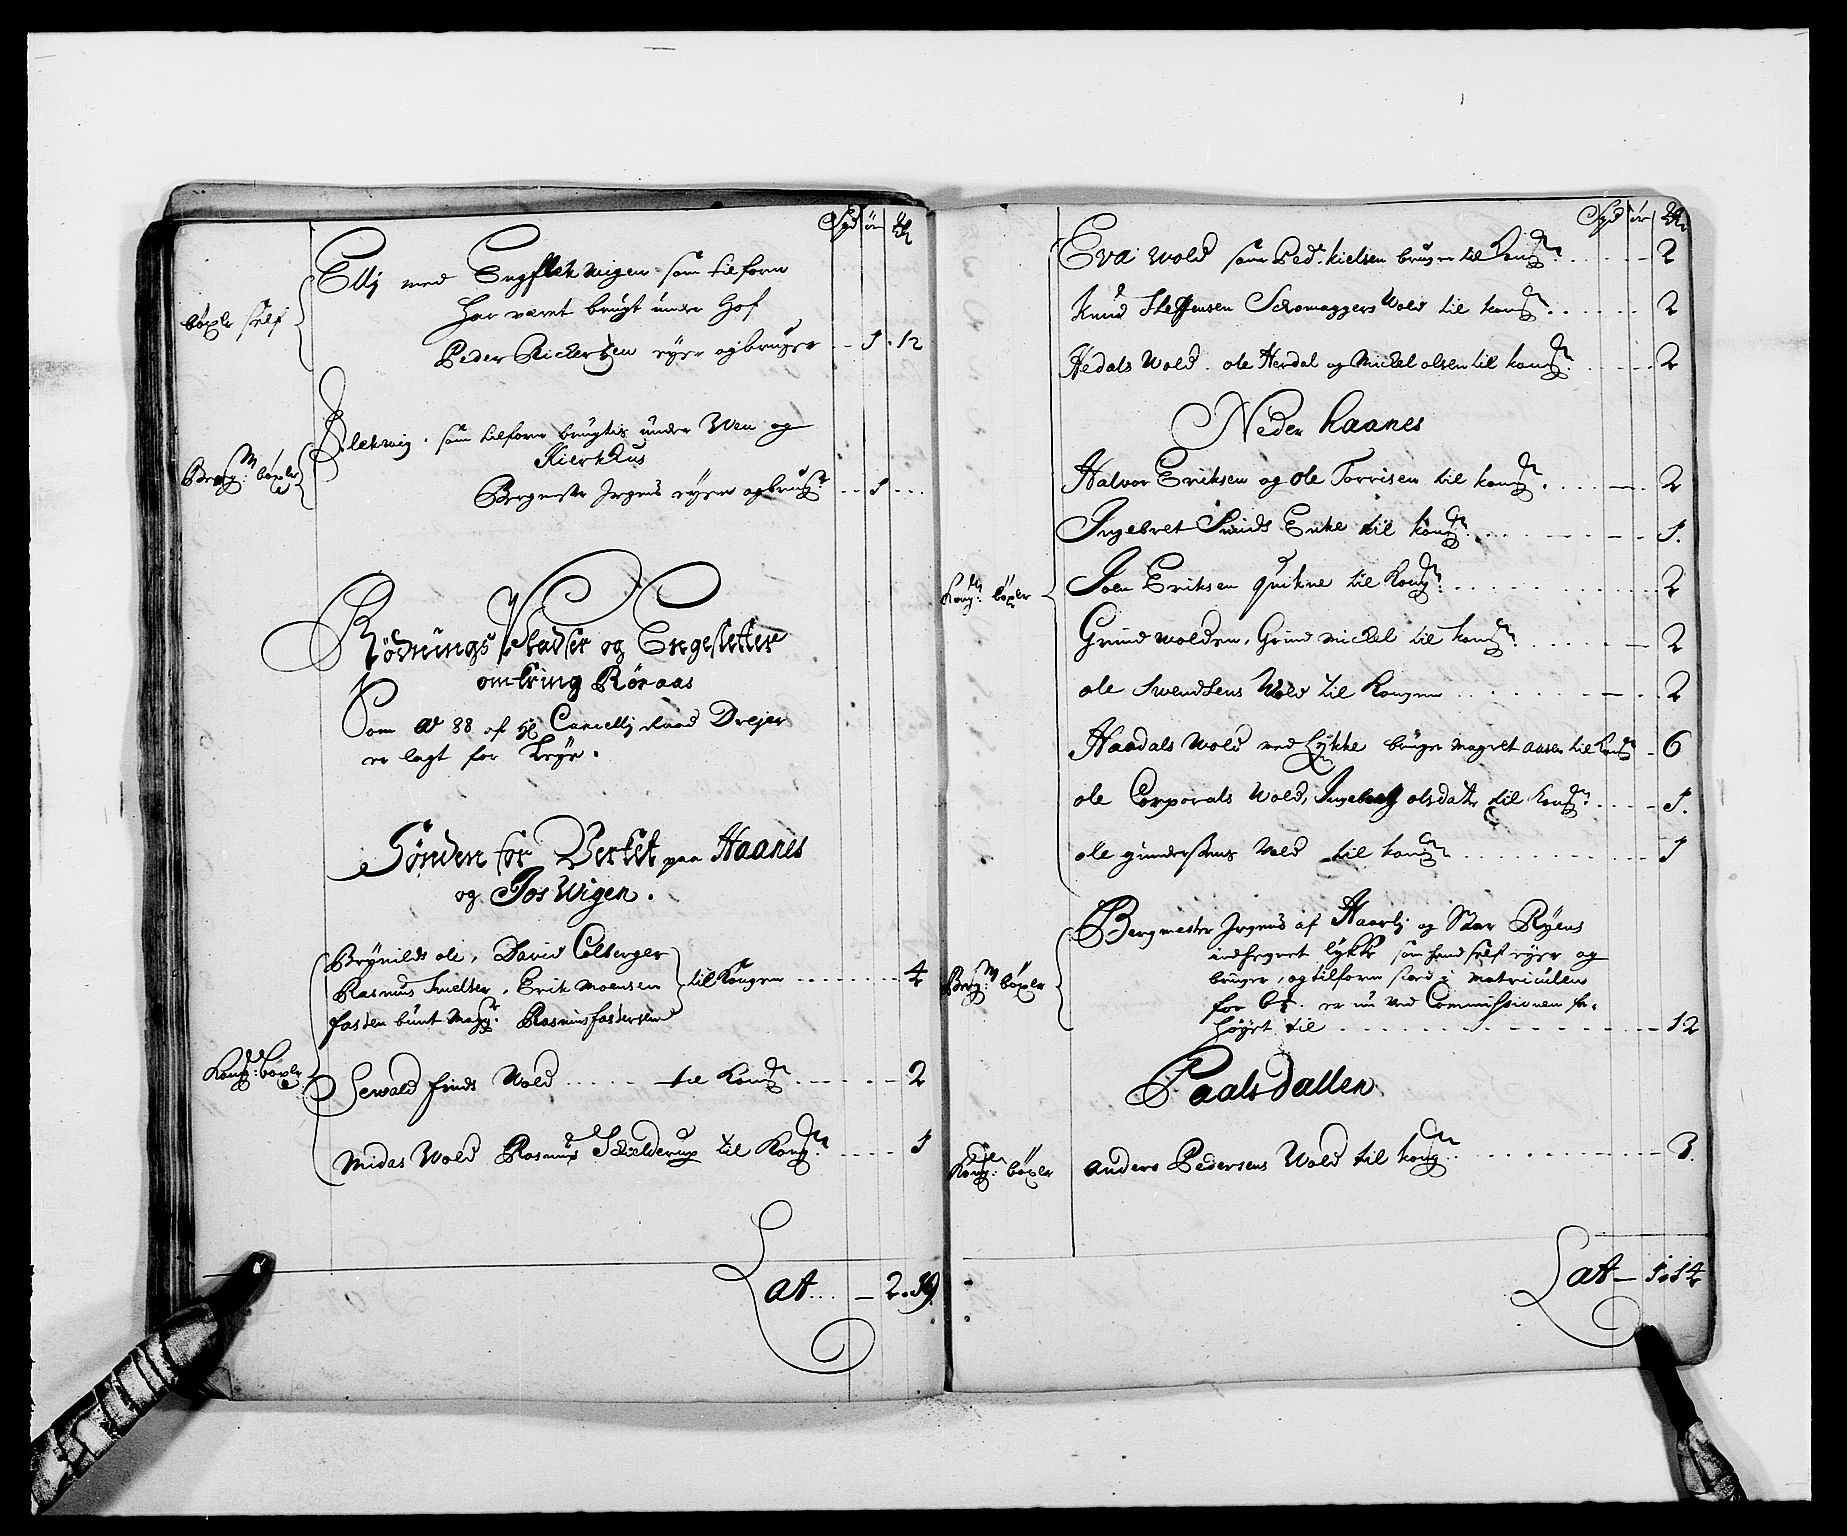 Spd ör
Elli med Engslet wigen som tilforn
har været brugt under Hof
böxler self
Peder Rickertsen eyer og bruger 1 . 12
Sletwig . som tilforn brugtis under Wen og
Kierkhus
Bergm: böxler
Bergmester Irgens eyer og brug: 1
Rödnings Pladser og Engesletter
omkring Röraas
Som Ao 88 af Hr Cancelli Raad Drejer
er lagt for Leye .
Sönden for Verket paa Haanes
og Gos Wigen .
Brynilds ole, David Colberger
Rasmus Smelter, Erik Moensen til Kongen 4
fasten bunt Mag: Rasmus fastersen
Kong: böxler
Sewald finds Wold til Kong 2
Midas Wold Rasmus Schielderup til Kong: 1
Lat 2 . 19
Spd ör
Eva Wold som Ped: Kielsen bruger til Kong: 2
Knud Steffensen Schomaggers Wold til kong: 2
Hedals Wold . ole Herdal og Mickel olsen til kong: 2
Neder Haanes
Halvor Eriksen og Ole Torrisen til kong: 2
Ingebret Smids Enke til kong: 1.
Kong: böxler
Joen Eriksen quikne til Kong: 2
Grind wolden, Grind Mickel til kong: 2
ole Swendsens Wold til Kongen 2
Haadals Wold med Lykke bruger Magret aasen til Kong 6
ole Corporals Wold, Ingeborg olsdater til Kong: 1.
ole gundersens Wold til kong 1
Bergmester Irgens af Haarli og Stor Ryens
indhegnet lykke som hand self eyer og
bruger, og tilforn stoed i matriculen
Bergm: böxler
for er nu ved Commissionen for-
höyet til 12
Paals dallen
Kong: böxler
anders Pedersens Wold til kong 3.
Lat 1 . 14